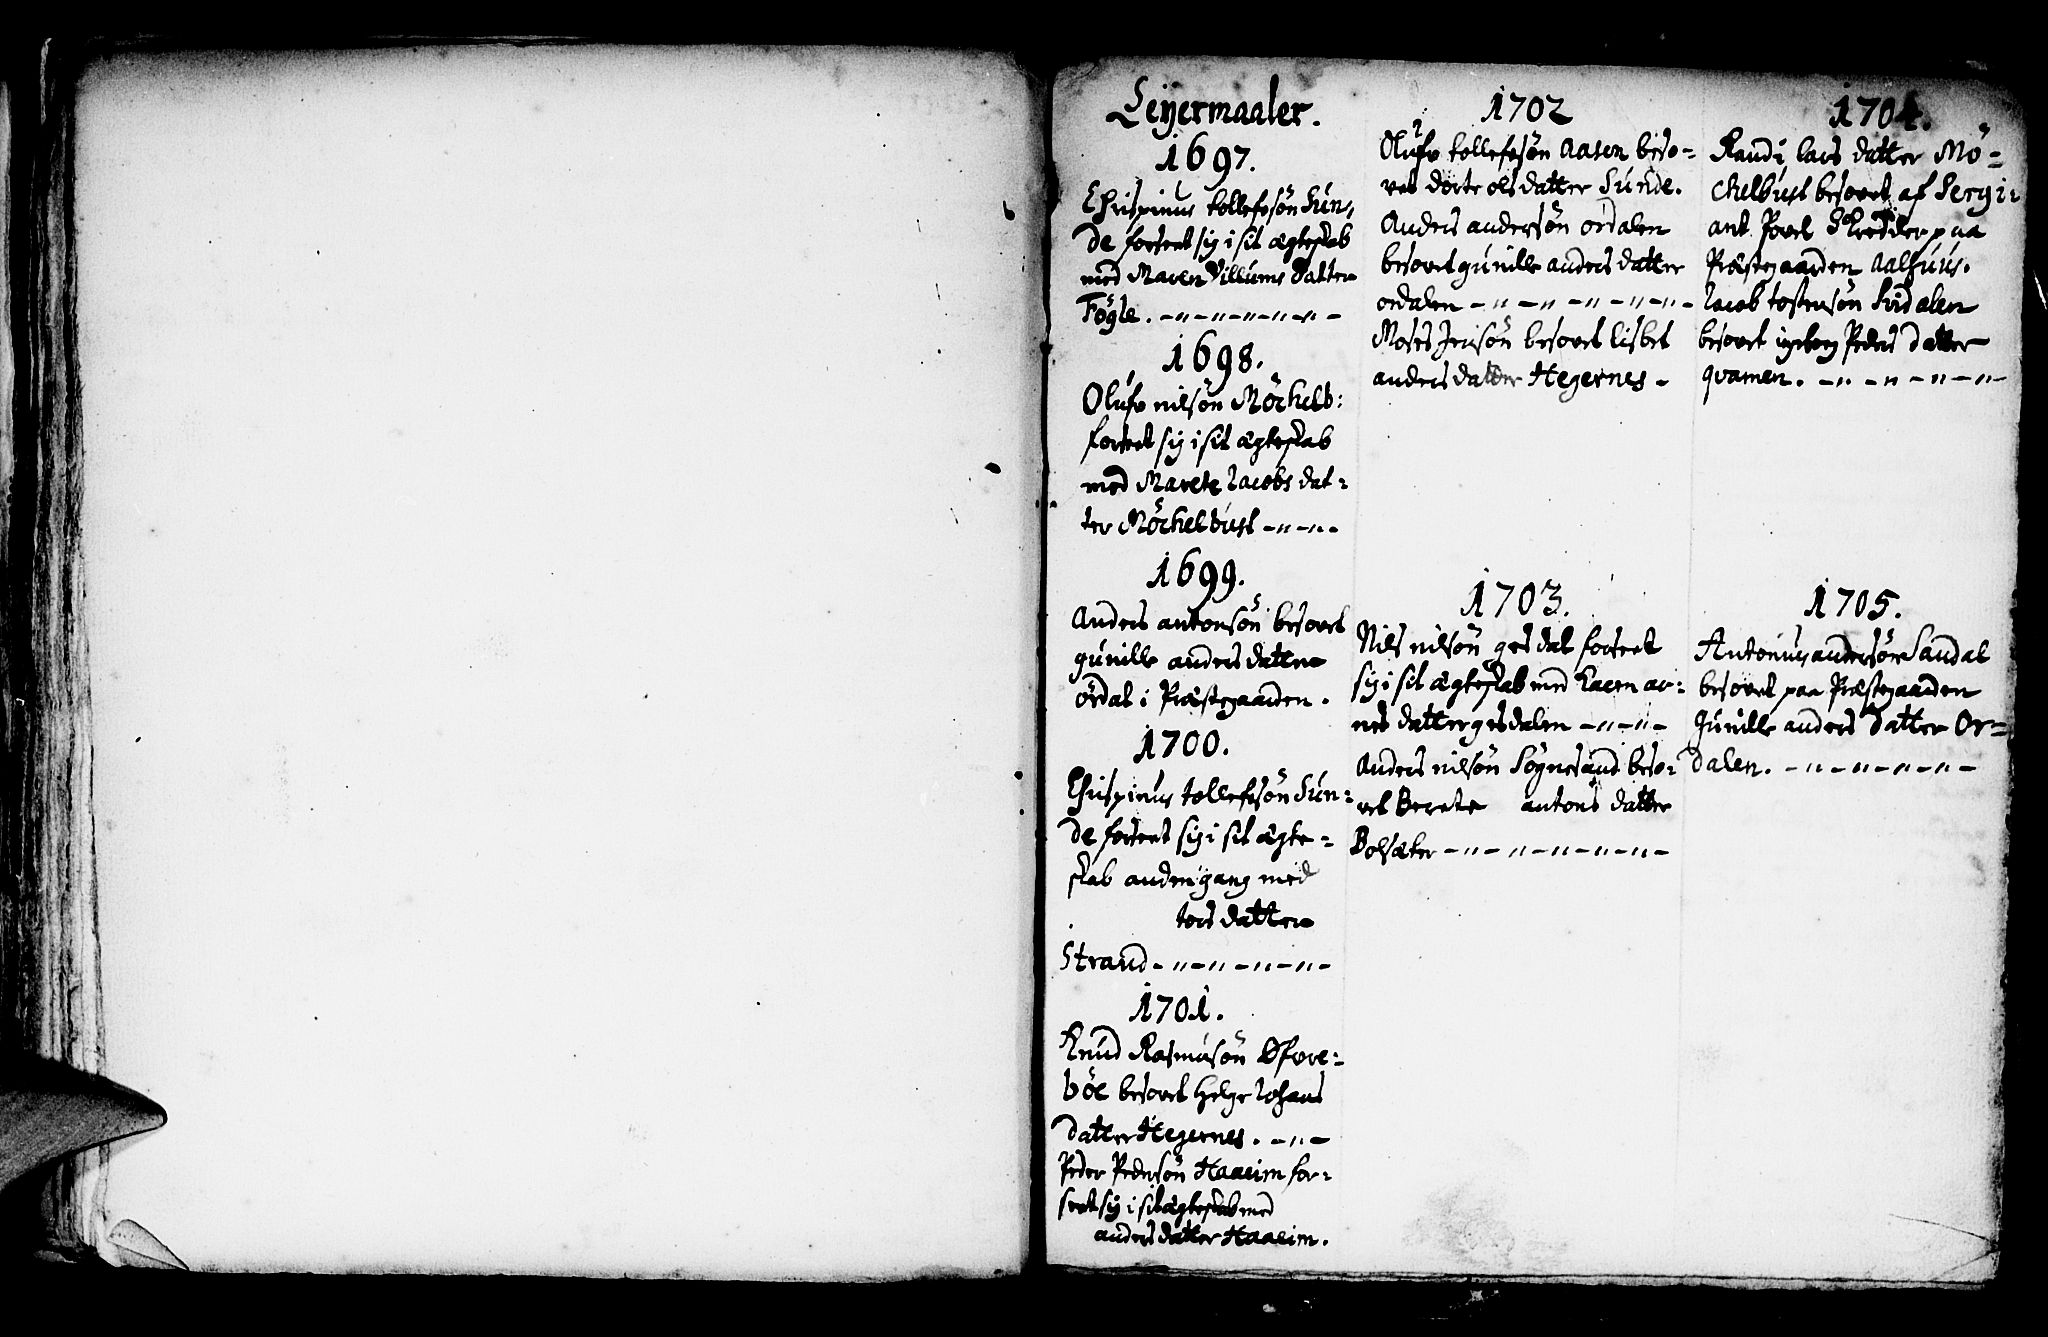 Leyermaaler.
1697.
Chrispinus tollefsøn Sún,
de forseet sig i sit ægteskab
med Maren Villúms Datter
Føgle. -"-"-"-"-"-
1698.
Olúfv nilsøn Møchelb:
forseet sig i sit ægteskab
med Marete Jacobs dat=
ter Møchelbúst -"-"-
1699.
Anders antonsøn besovet
gúnille anders datter
ørdal i Præstegaarden.
1700.
Chrispinús tollefsøn Sún=
de forseet sig i sit ægte=
skab anden gang med
tors datter
Strand-"-"-"-"-
1701.
Knúd Rasmúsøn Øfvre=
bøe besovet Helge Johans
datter Hegernes. -"-
Peder Pedersøn Haaeim for=
seet sig i sit ægteskab med
anders datter Haaeim.
1702
Olúfv tollefsøn Aasen beso=
vet dorte ols datter Súnde.
Anders andersøn ordalen
besovet gúnille anders datter
ordalen -"-"-"-"-"-
Moses Jensøn besovet lisbet
anders datter Hegernes -
1703.
Nils nilsøn gesdal forseet
sig i sit ægteskab med Karen ar=
nes datter gesdalen -"-"-
Anders nilsøn Søgnesand beso=
vet Berete antons datter
Bolsæter -"-"-"-"-"-
1704.
Randi lars datter Mø=
chelbúst besovet af Sergi=
ant Povel Skredder paa
Præstegaarden Aalhúús.
Jacob tostensøn Svidalen
besovet ingeborg Peders Datter
qvamen. -"-"-"-"-
1705.
Antonius andersøn Sandal
besovet paa Præstegaarden
Gúnille anders datter Or=
dalen. -"-"-"-"-